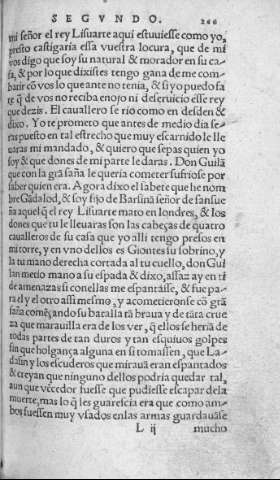 SEGVNDO. 266
mi señor el rey Lisuarte aqui estuuiesse como yo,
presto castigaria essa vuestra locura, que de mi
vos digo que soy su natural & morador en su ca-
sa, & por lo que dixistes tengo gana de me com-
batir cõ vos lo que ante no tenia, & si yo puedo fa
re q̃ de vos no reciba enojo ni deseruicio esse rey
que dezis. El cauallero se rio como en desden &
dixo. Yo te prometo que antes de medio dia se-
ras puesto en tal estrecho que muy escarnido le lle
uaras mi mandado, & quiero que sepas quien yo
soy & que dones de mi parte le daras. Don Guilã
que con la grã saña le queria cometer sufriose por
saber quien era. Agora dixo el sabete que he nom
bre Gãdalod, & soy fijo de Barsinã señor de sansue
ña aquel q̃ el rey Lisuarte mato en londres, & los
dones que tu le lleuaras son las cabeças de quatro
caualleros de su casa que yo alli tengo presos en
mi torre, y en vno dellos es Giontes su sobrino, y
la tu mano derecha cortada al tu cuello, don Gui
lan metio mano a su espada & dixo, assaz ay en ti
de amenazas si conellas me espantasse, & fue pa-
ra el y el otro assi mesmo, y acometieronse cõ grã
saña começando su batalla tã braua y de tãta crue
za que marauilla era de los ver, q̃ ellos se heriã de
todas partes de tan duros y tan esquiuos golpes
sin que holgança alguna en si tomassen, que La-
dasin y los escuderos que mirauã eran espantados
& creyan que ninguno dellos podria quedar tal,
aun que vẽcedor fuesse que pudiesse escapar de la
muerte, mas lo q̃ les guarescia era que como am-
bos fuessen muy vsados enlas armas guardauãse
L ij mucho